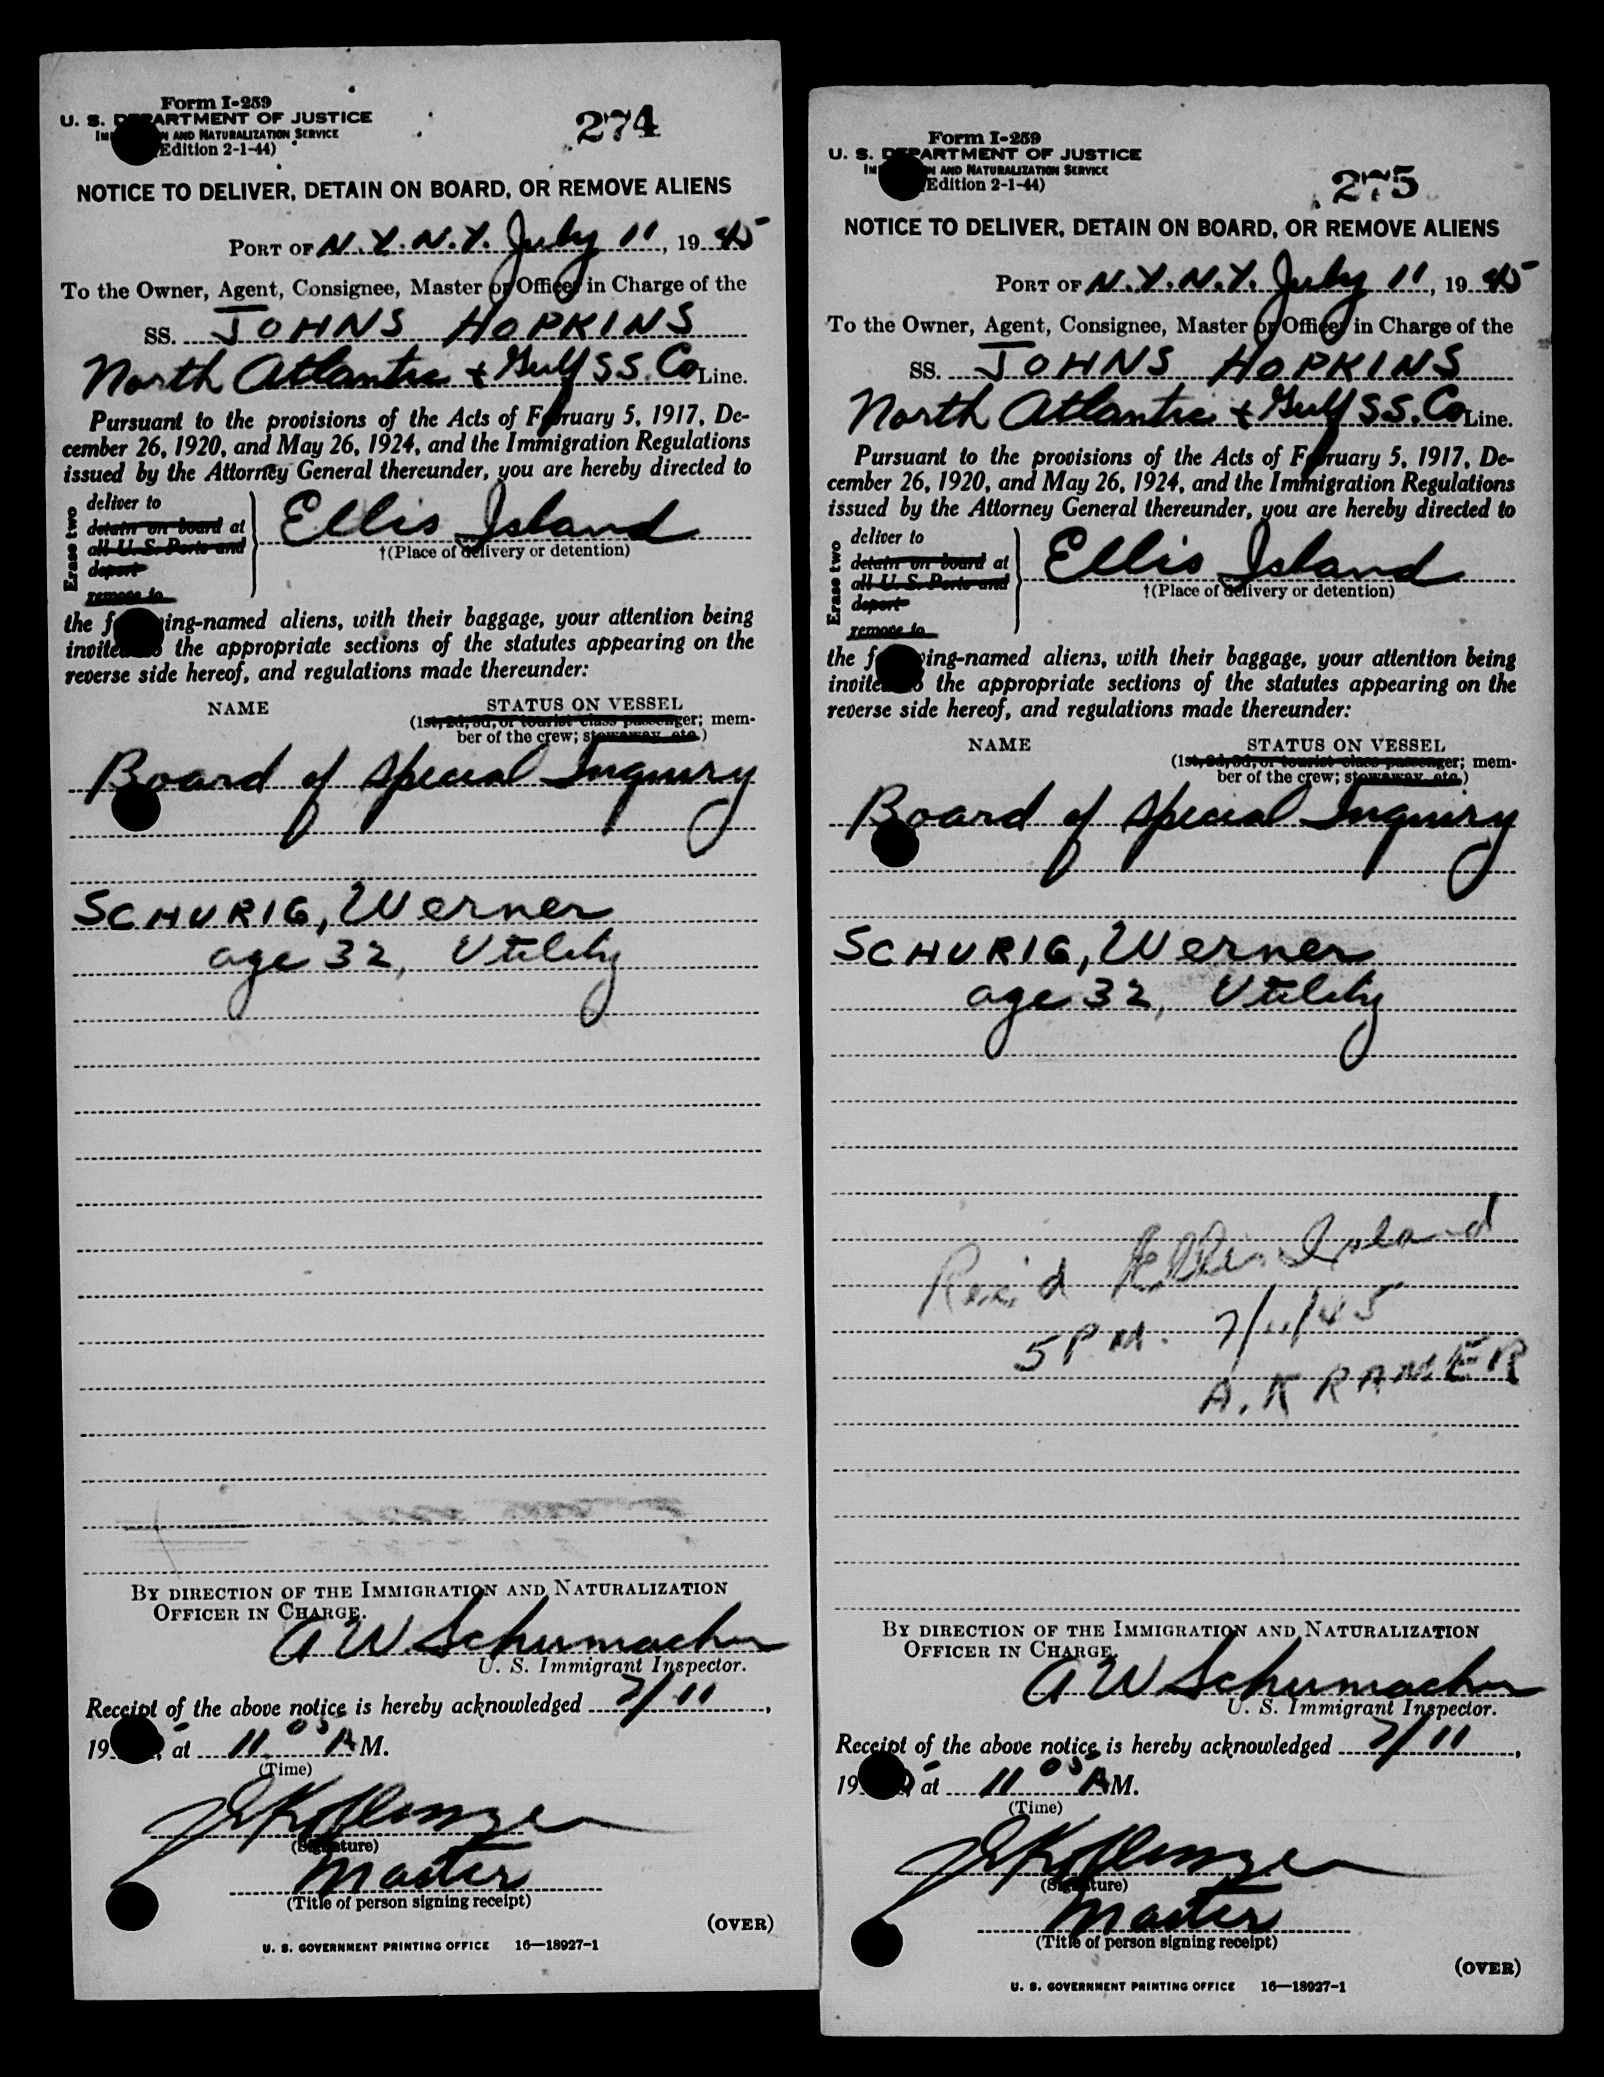 Form I-259
U. S. DEPARTMENT OF JUSTICE
AND NATURALIZATION SERVICE
Edition 2-1-44)
274
NOTICE TO DELIVER, DETAIN ON BOARD, OR REMOVE ALIENS
PORT OF N.Y.N.Y. July 11, 1945
To the Owner, Agent, Consignee, Master or Officer in Charge of the
SS. JOHNS HOPKINS
North Atlantic + Gulf S S. Co Line.
Pursuant to the provisions of the Acts of February 5, 1917, De-
cember 26, 1920, and May 26, 1924, and the Immigration Regulations
issued by the Attorney General thereunder, you are hereby directed to
Erase two
deliver to
detain on board at
all U. S. Ports and
deport
remove to
Ellis Island
†(Place of delivery or detention)
the following-named aliens, with their baggage, your attention being
invited to the appropriate sections of the statutes appearing on the
reverse side hereof, and regulations made thereunder:
NAME STATUS ON VESSEL
(1st, 2d, 3d, or tourist class passenger; mem-
ber of the crew; stowaway, etc.)
Board of Special Inquiry
SCHURIG, Werner
age 32, Utility
BY DIRECTION OF THE IMMIGRATION AND NATURALIZATION
OFFICER IN CHARGE.
A W Schumacher
U. S. Immigrant Inspector.
Receipt of the above notice is hereby acknowledged 7/11,
19 , at 11 05 AM.
(Time)
(Signature)
Master
(Title of person signing receipt)
(OVER)
U. S. GOVERNMENT PRINTING OFFICE 16—18927-1
Form I-259
U. S. DEPARTMENT OF JUSTICE
AND NATURALIZATION SERVICE
Edition 2-1-44)
275
NOTICE TO DELIVER, DETAIN ON BOARD, OR REMOVE ALIENS
PORT OF N.Y.N.Y. July 11, 1945
To the Owner, Agent, Consignee, Master or Officer in Charge of the
SS. JOHNS HOPKINS
North Atlantic + Gulf S S. Co Line.
Pursuant to the provisions of the Acts of February 5, 1917, De-
cember 26, 1920, and May 26, 1924, and the Immigration Regulations
issued by the Attorney General thereunder, you are hereby directed to
Erase two
deliver to
detain on board at
all U. S. Ports and
deport
remove to
Ellis Island
†(Place of delivery or detention)
the following-named aliens, with their baggage, your attention being
invited to the appropriate sections of the statutes appearing on the
reverse side hereof, and regulations made thereunder:
NAME STATUS ON VESSEL
(1st, 2d, 3d, or tourist class passenger; mem-
ber of the crew; stowaway, etc.)
Board of Special Inquiry
SCHURIG, Werner
age 32, Utility
Rec'd Ellis Island
5 PM. 7/11/45
A. KRAMER
BY DIRECTION OF THE IMMIGRATION AND NATURALIZATION
OFFICER IN CHARGE.
A W Schumacher
U. S. Immigrant Inspector.
Receipt of the above notice is hereby acknowledged 7/11,
19 , at 11 05 AM.
(Time)
(Signature)
Master
(Title of person signing receipt)
(OVER)
U. S. GOVERNMENT PRINTING OFFICE 16—18927-1